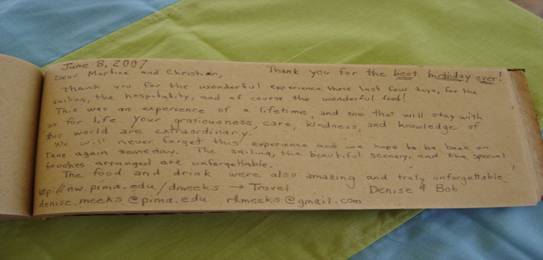 June 8, 2007
Dear Martine and Christian, Thank you for the best birthday ever!
Thank you for the wonderful experience these last four days, for the
sailing, the hospitality, and of course the wonderful food!
This was an experience of a lifetime, and one that will stay with
us for life. Your graciousness, care, kindness, and knowledge of
the world are extraordinary.
We will never forget this experience and we hope to be back on
again someday. The sailing, the beautiful scenery, and the special
touches arranged are unforgettable.
The food and drink were also amazing and truly unforgettable.
http://nw.pima.edu/dmeeks → Travel Denise & Bob
denise.meeks@pima.edu rdmeeks@gmail.com